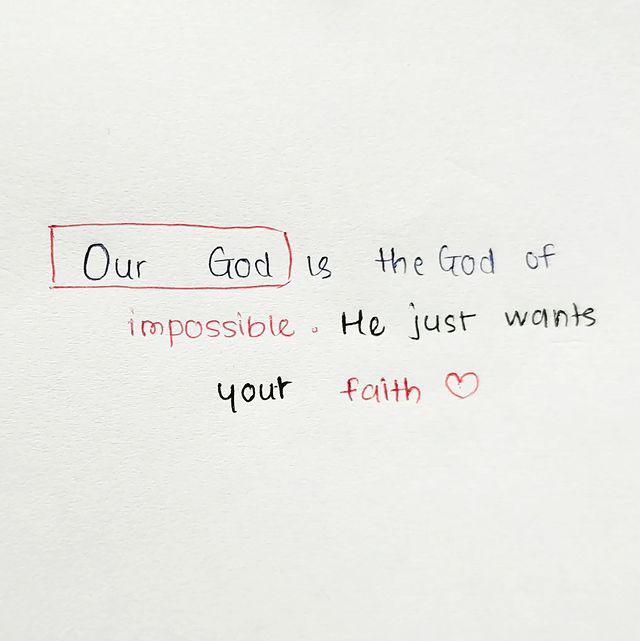 Our God is the God of
impossible. He just wants
your faith ♡